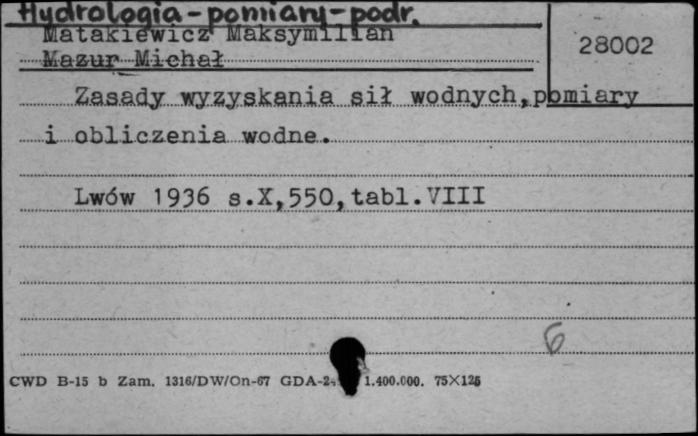 Hydrologia-pomiary-podr.
Matakiewicz Maksymilian
28002
Mazur Michał
Zasady wyzyskania sił wodnych,pomiary
i obliczenia wodne.
Lwów 1936 s.X,550,tabl.VIII
6
CWD B-15 b Zam. 1316/DW/On-67 1.400.000. 75X125